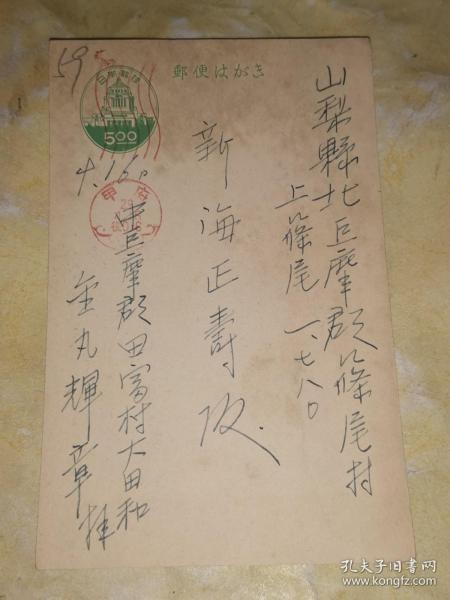 山梨縣北巨摩郡篠尾村
上篠尾 一、七八〇
新海正壽殿
郵便はがき
59
日本郵便
5.00
4.16.
甲府
29
中巨摩郡田富村大田和
金丸輝章拝
孔夫子旧书网
www.kongfz.com